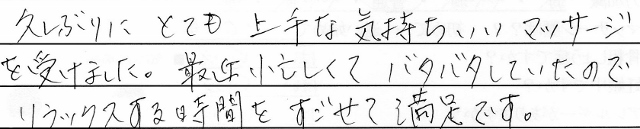 久しぶりに とても 上手な 気持ちいい マッサージ
を受けました。最近忙しくて バタバタしていたので
リラックスする時間を すごせて 満足です。